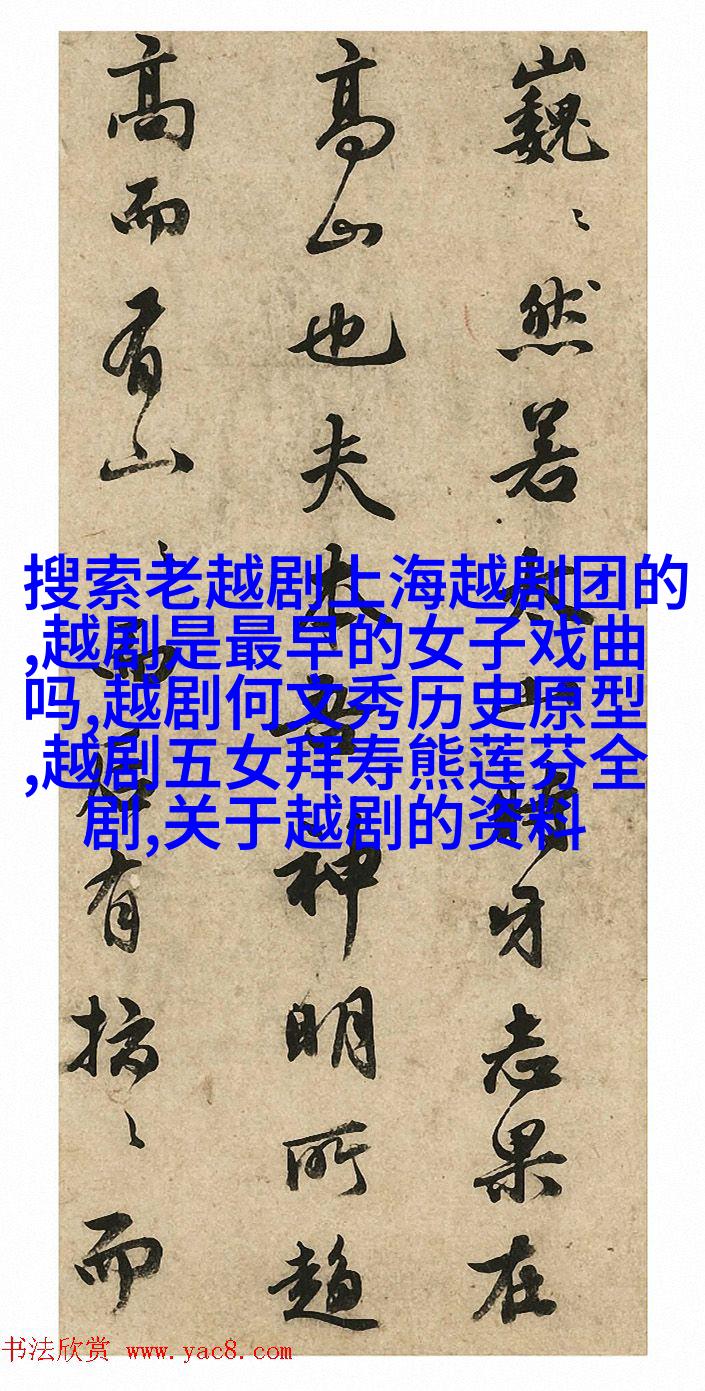 巍〻然若太山牙志果在
高山也夫神明所趨
高而有山〻而有〻而
搜索老越剧上海越剧团的
,越剧是最早的女子戏曲
吗,越剧何文秀历史原型
,越剧五女拜寿熊莲芬全
剧,关于越剧的资料
书法欣赏 www.yac8.com